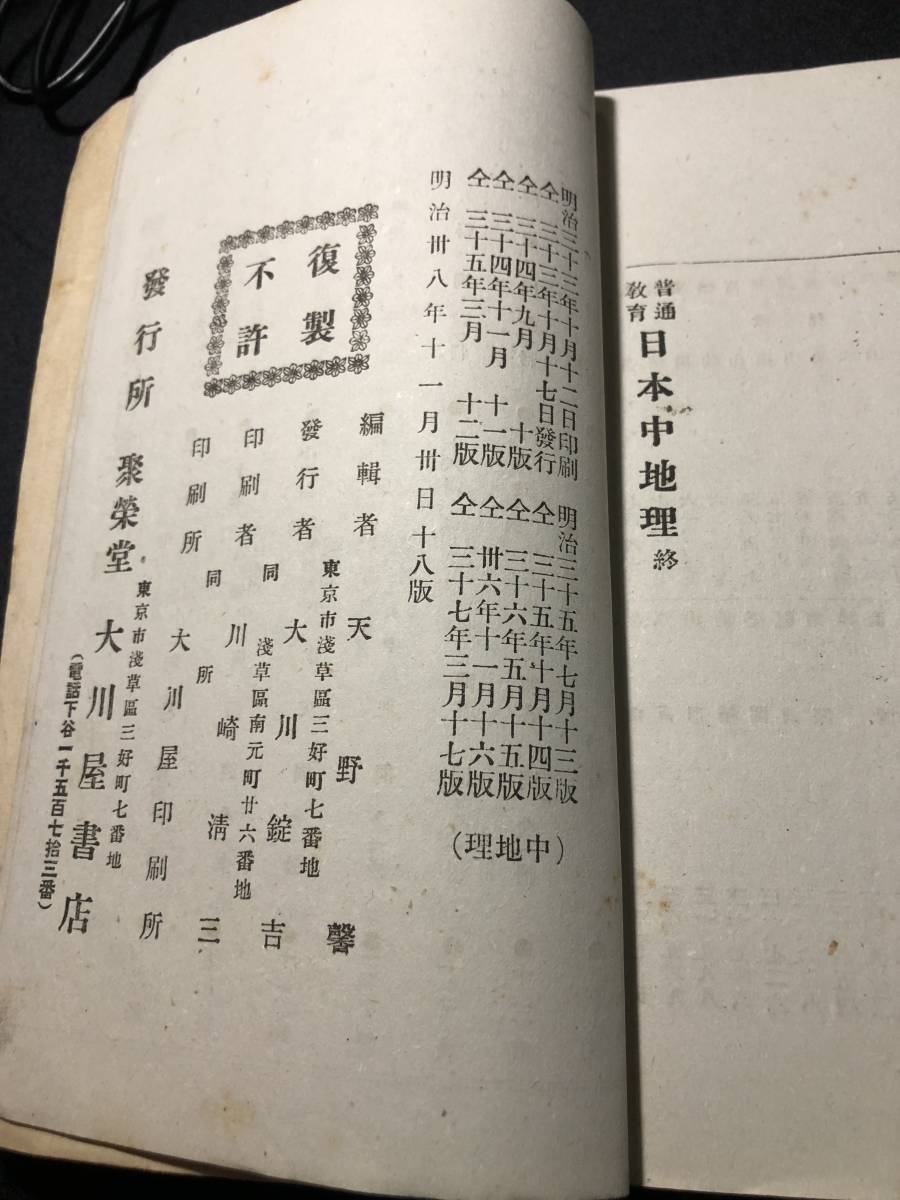 普通
敎育
日本中地理 終
明治三十三年十月十二日印刷
仝 三十三年十月十七日發行
仝 三十四年九月 十版
仝 三十四年十一月 十一版
仝 三十五年三月 十二版
明治三十五年七月十三版
仝 三十五年十月十四版
仝 三十六年五月十五版
仝 卅六年十一月十六版
仝 三十七年三月十七版
(中地理)
明治卅八年十一月卅日十八版
復製
不許
編輯者 天野馨
東京市淺草區三好町七番地
發行者 大川錠吉
同 淺草區南元町廿六番地
印刷者 川崎淸三
印刷所 同所 大川屋印刷所
東京市淺草區三好町七番地
發行所 聚榮堂 大川屋書店
(電話下谷一千五百七拾三番)